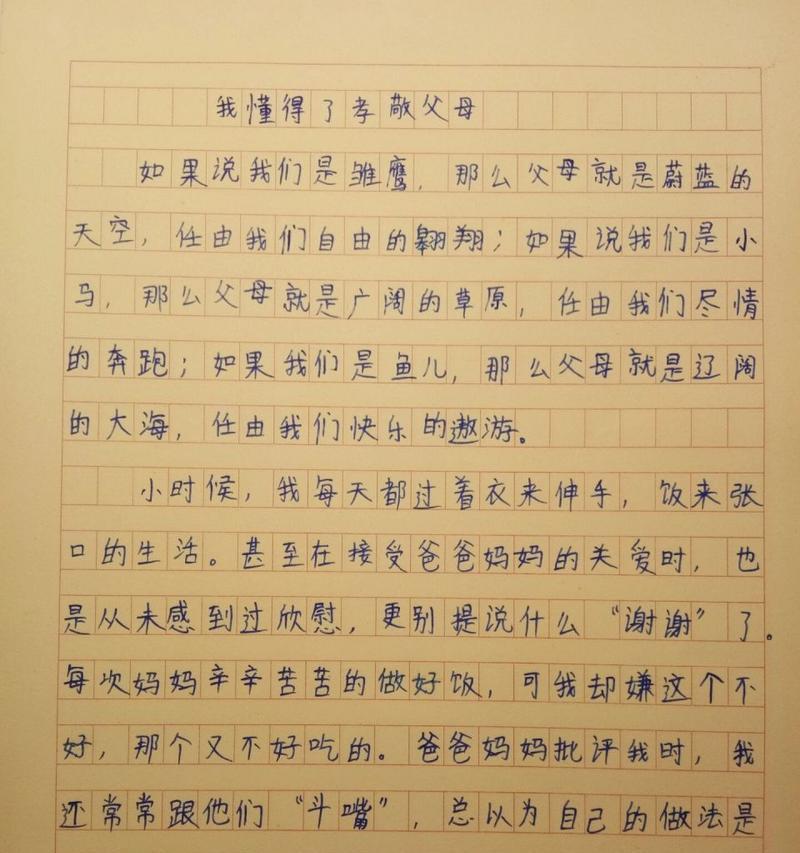 我懂得了孝敬父母
如果说我们是雏鹰，那么父母就是蔚蓝的
天空，任由我们自由的翱翔；如果说我们是小
马，那么父母就是广阔的草原，任由我们尽情
的奔跑；如果我们是鱼儿，那么父母就是辽阔
的大海，任由我们快乐的遨游。
小时候，我每天都过着衣来伸手，饭来张
口的生活。甚至在接受爸爸妈妈的关爱时，也
是从未感到过欣慰，更别提说什么“谢谢”了。
每次妈妈辛辛苦苦的做好饭，可我却嫌这个不
好，那个又不好吃的。爸爸妈妈批评我时，我
还常常跟他们“斗嘴”，总以为自己的做法是